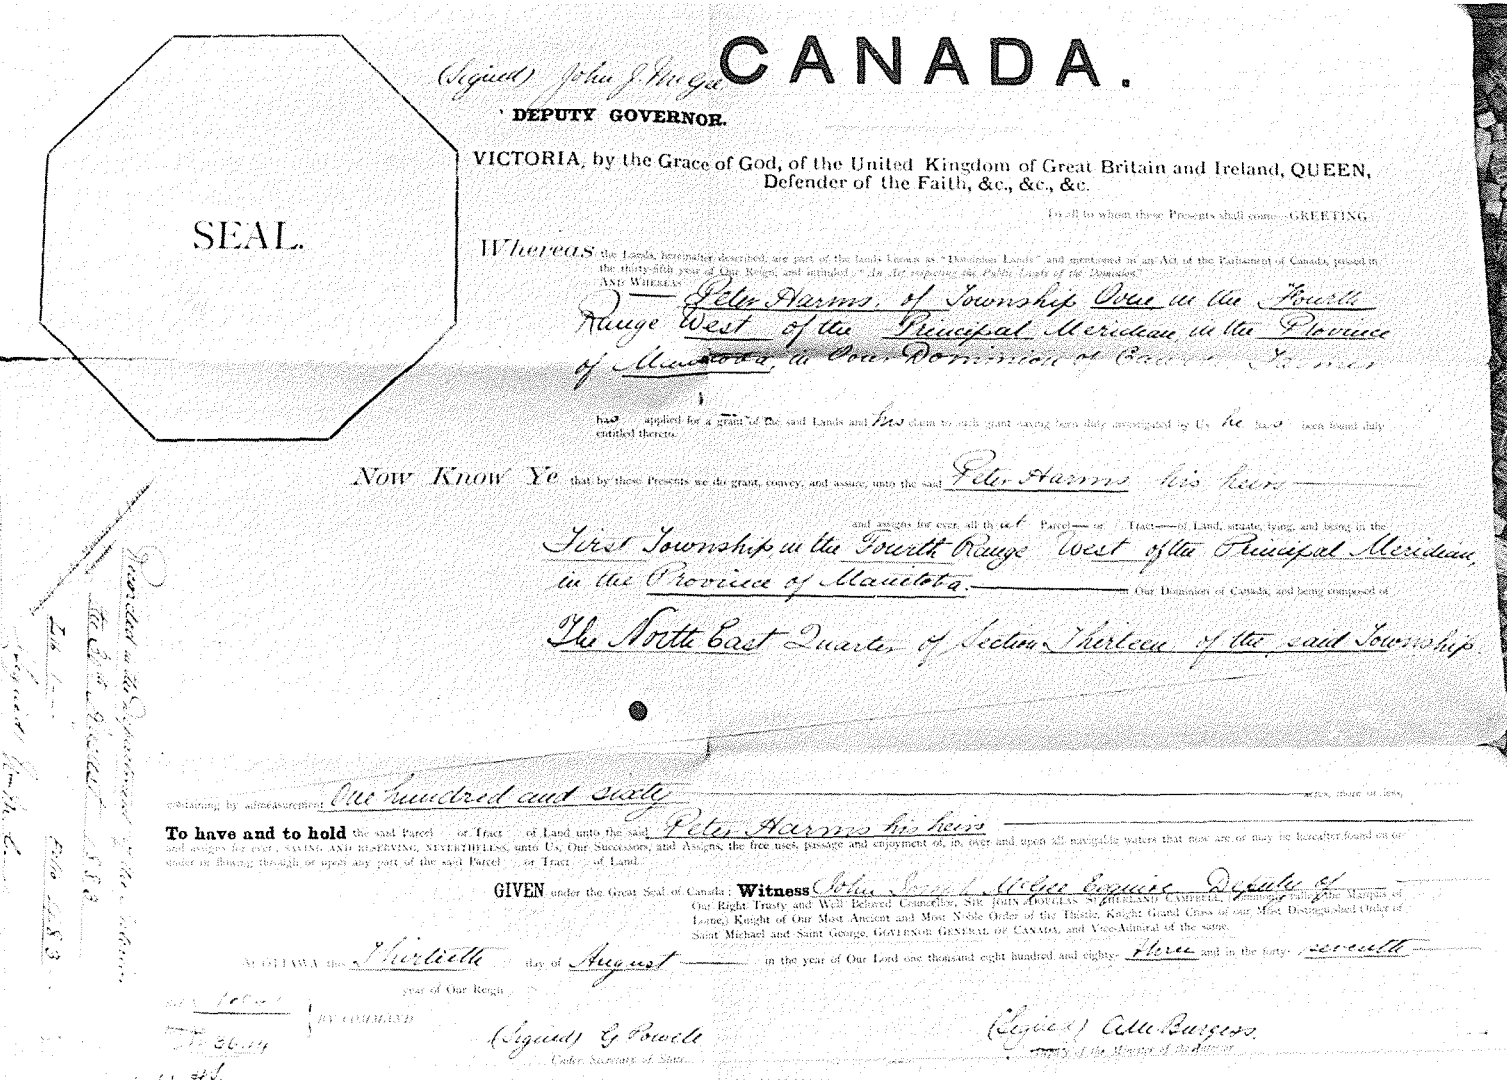 CANADA.
(Signed) John J. McGee
DEPUTY GOVERNOR.
VICTORIA, by the Grace of God, of the United Kingdom of Great Britain and Ireland, QUEEN,
Defender of the Faith, &c., &c., &c.
To all to whom these Presents shall come—GREETING
SEAL.
Whereas the Lands, hereinafter described, are part of the lands known as "Dominion Lands" and mentioned in an Act of the Parliament of Canada, passed in
the thirty-fifth year of Our Reign, and intituled: "An Act respecting the Public Lands of the Dominion"
AND WHEREAS Peter Harms, of Township One in the Fourth
Range West of the Principal Meridian, in the Province
of Manitoba, in Our Dominion of Canada Farmer
has applied for a grant of the said Lands and his claim to such grant having been duly investigated by Us he has been found duly
entitled thereto.
Now Know Ye that by these Presents we do grant, convey, and assure, unto the said Peter Harms his heirs
and assigns for ever, all that Parcel or Tract of Land, situate, lying, and being in the
First Township in the Fourth Range West of the Principal Meridian,
in the Province of Manitoba. in Our Dominion of Canada, and being composed of
The North East Quarter of Section Thirteen of the said Township
containing by admeasurement One hundred and sixty acres, more or less,
To have and to hold the said Parcel or Tract of Land unto the said Peter Harms his heirs
and assigns for ever, SAVING AND RESERVING, NEVERTHELESS, unto Us, Our Successors, and Assigns, the free uses, passage and enjoyment of, in, over and upon all navigable waters that now are or may be hereafter found on or
under or flowing through or upon any part of the said Parcel or Tract of Land.
GIVEN under the Great Seal of Canada: Witness John Joseph McGee Esquire Deputy of
Our Right Trusty and Well Beloved Councillor, SIR JOHN DOUGLAS SUTHERLAND CAMPBELL, (commonly called the Marquis of
Lorne,) Knight of Our Most Ancient and Most Noble Order of the Thistle, Knight Grand Cross of our Most Distinguished Order of
Saint Michael and Saint George, GOVERNOR GENERAL OF CANADA, and Vice-Admiral of the same.
At OTTAWA this Thirtieth day of August in the year of Our Lord one thousand eight hundred and eighty- three and in the forty- seventh
year of Our Reign
BY COMMAND
(Signed) G Powell
Under Secretary of State.
(Signed) A M Burgess.
Deputy of the Minister of the Interior
Recorded in the Department of the Interior